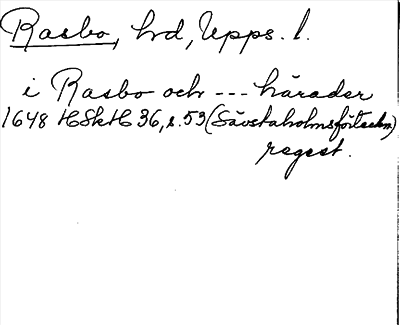 Rasbo, hd, Upps. l.
i Rasbo och --- härader
1648 HSkH 36, s. 53 (Sävstaholmsförteckn)
regest.